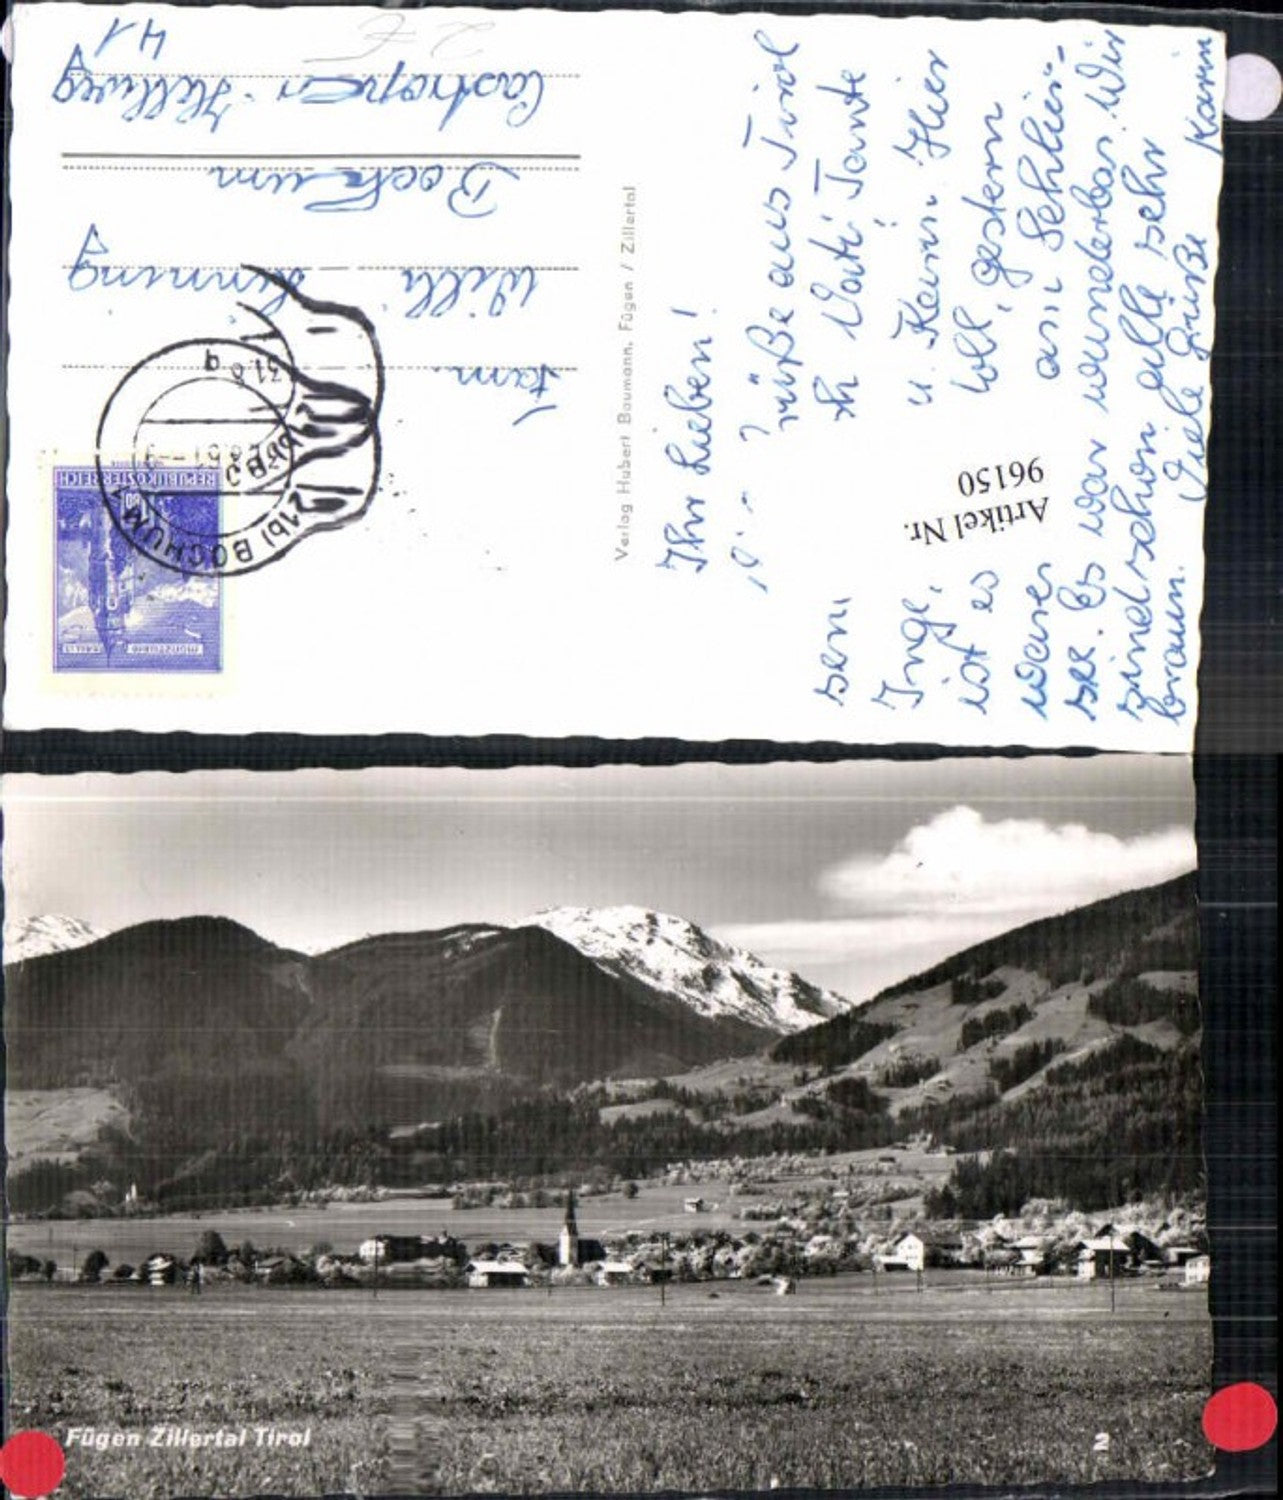 Ihr Lieben!
Grüße aus Tirol
Vati Tante
Inge, u. Karin. Hier
ist es toll, gestern
waren am Schlier-
see. Es war wunderbar. Wir
sind schon alle sehr
braun. Viele Grüße Karin
Artikel Nr.
96150
Verlag Hubert Baumann, Fügen / Zillertal
Fam.
Willi Henning
Bochum
Castroper Hellweg
41
REPUBLIK ÖSTERREICH
BOCHUM
Fügen Zillertal Tirol
2